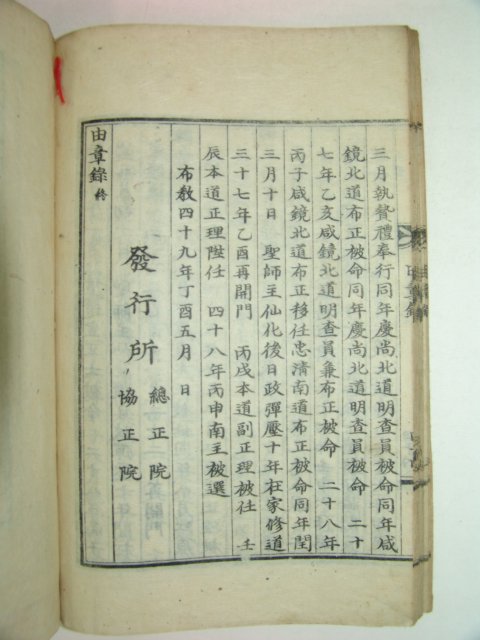 三月執贄禮奉行同年慶尚北道明查員被命同年咸
鏡北道布正被命同年慶尚北道明查員被命 二十
七年乙亥咸鏡北道明查員兼布正被命 二十八年
丙子咸鏡北道布正移任忠清南道布正被命同年閏
三月十日 聖師主仙化後日政彈壓十年在家修道
三十七年乙酉再開門 丙戌本道副正理被任 壬
辰本道正理陞任 四十八年丙申南主被選
布教四十九年丁酉五月 日
發行所 總正院
協正院
由章錄 終